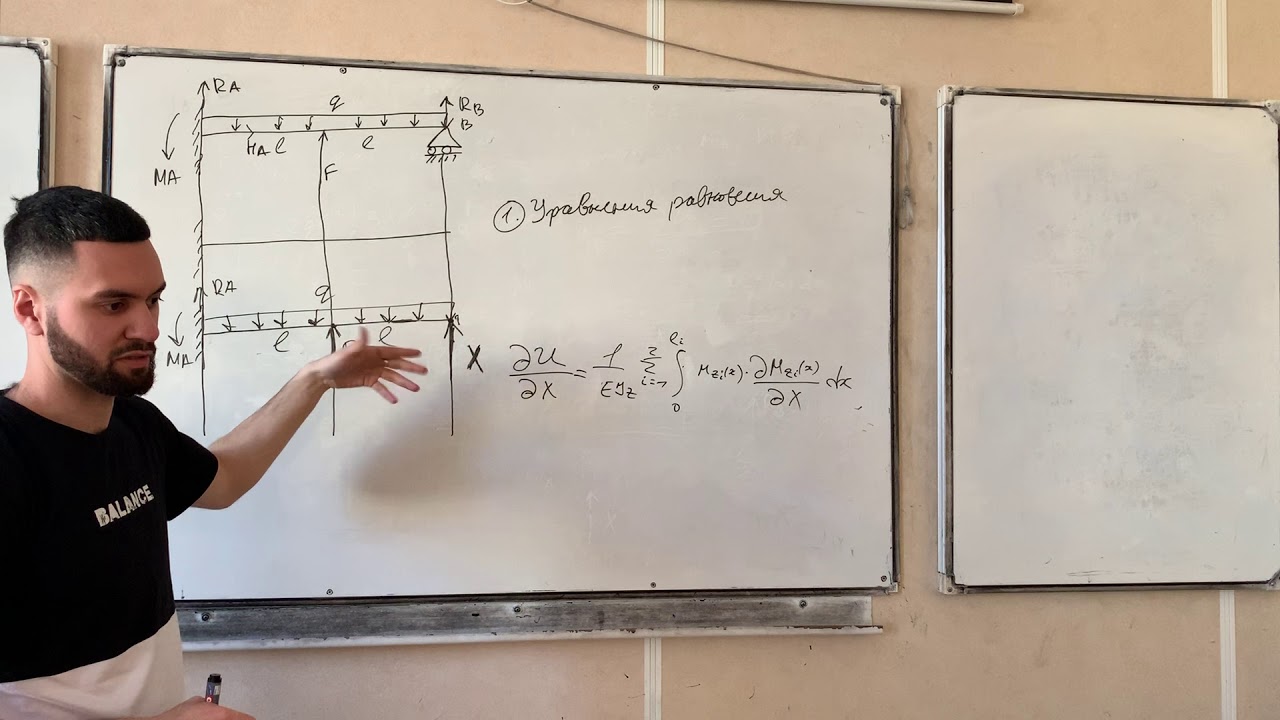 RA
q
RB
B
MA
HA
l
l
F
① Уравнения равновесия
RA
q
MA
l
l
X
∂U/∂X = 1/(EJz) Σ i=1 2 ∫ 0 li Mzi(x) · ∂Mzi(x)/∂X dx
BALANCE